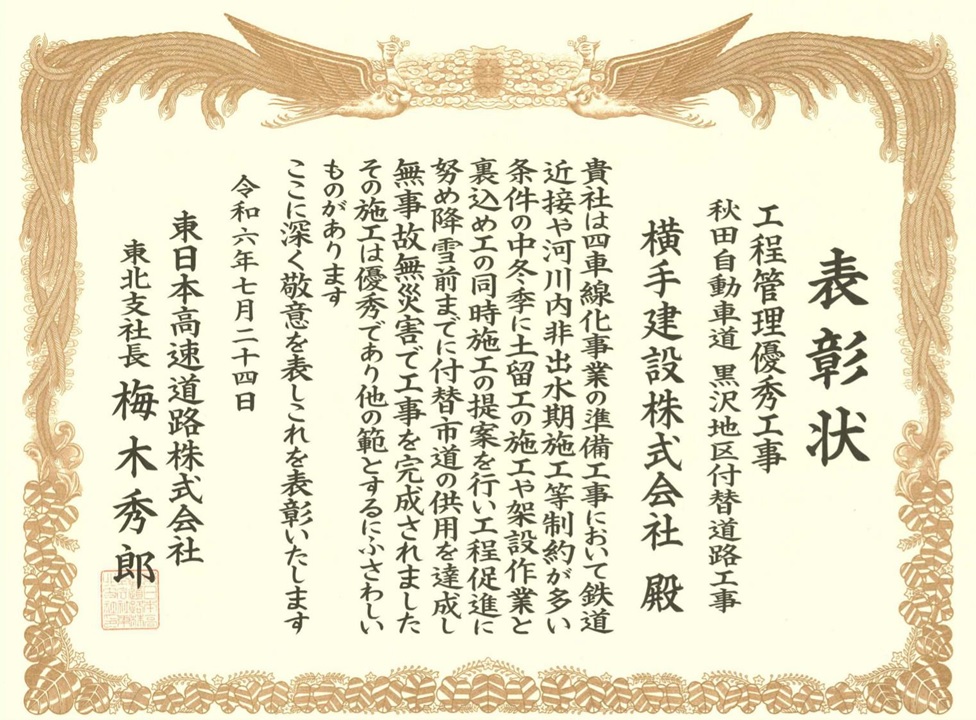 表彰状
工程管理優秀工事
秋田自動車道 黒沢地区付替道路工事
横手建設株式会社 殿
貴社は四車線化事業の準備工事において鉄道
近接や河川内非出水期施工等制約が多い
条件の中冬季に土留工の施工や架設作業と
裏込め工の同時施工の提案を行い工程促進に
努め降雪前までに付替市道の供用を達成し
無事故無災害で工事を完成されました
その施工は優秀であり他の範とするにふさわしい
ものがあります
ここに深く敬意を表しこれを表彰いたします
令和六年七月二十四日
東日本高速道路株式会社
東北支社長 梅木秀郎